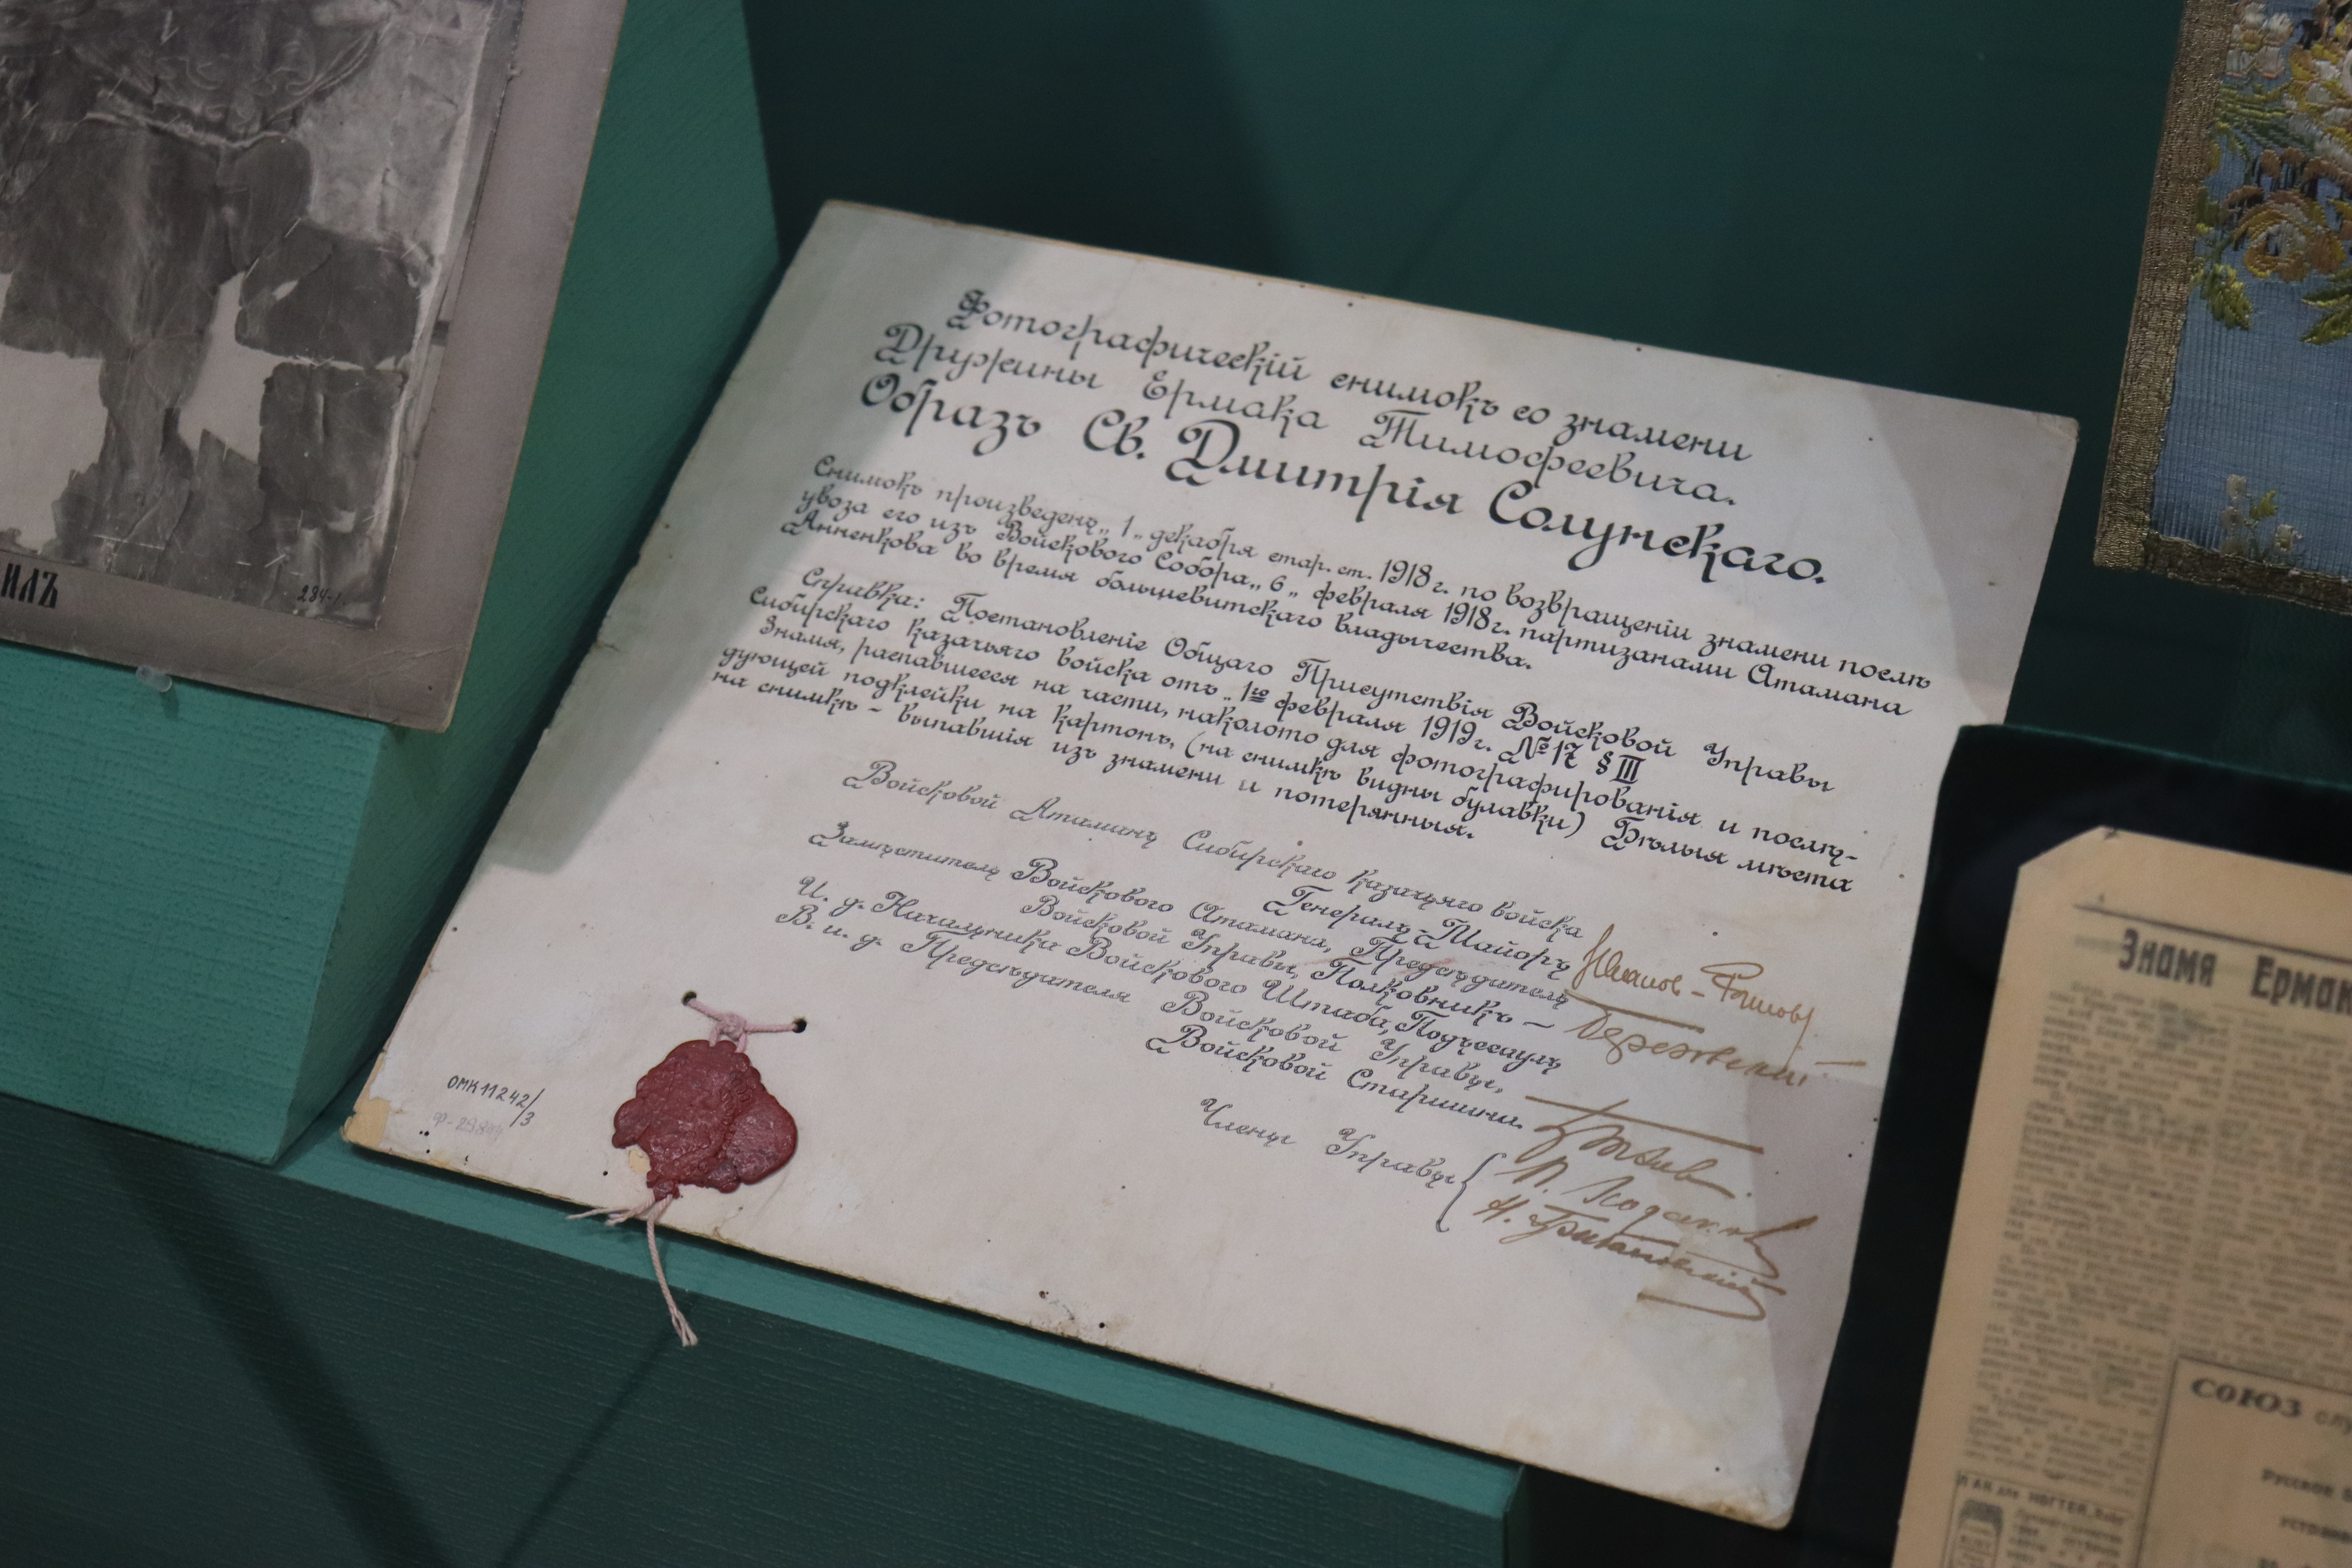 ИЛЪ
284-1
Фотографическій снимокъ со знамени
Дружины Ермака Тимофеевича.
Образъ Св. Дмитрія Солунскаго.
Снимокъ произведенъ „1„ декабря стар. ст. 1918 г. по возвращеніи знамени послѣ
увоза его изъ Войскового Собора „6„ февраля 1918 г. партизанами Атамана
Анненкова во время большевитскаго владычества.
Справка: Постановленіе Общаго Присутствія Войсковой Управы
Сибирскаго казачьяго войска отъ „1го февраля 1919 г. № 17 § III
Знамя, распавшееся на части, наколото для фотографированія и послѣ-
дующей подклейки на картонъ, (на снимкѣ видны булавки) Бѣлыя мѣста
на снимкѣ - выпавшія изъ знамени и потерянныя.
Войсковой Атаманъ Сибирскаго казачьяго войска
Генералъ-Маіоръ Иванов-Ринов
Замѣститель Войскового Атамана, Предсѣдатель
Войсковой Управы, Полковникъ — Березовский
И. д. Начальника Войскового Штаба, Подъесаулъ
В. и. д. Предсѣдателя Войсковой Управы,
Войсковой Старшина.
Члены Управы {
ОМК 11242/3
Знамя Ермак
СОЮЗ
Русское